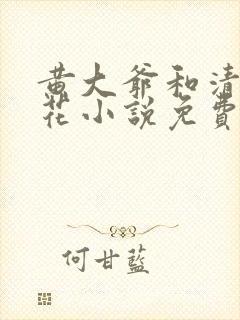 黄大爷和清
花小說免費
何甘藍